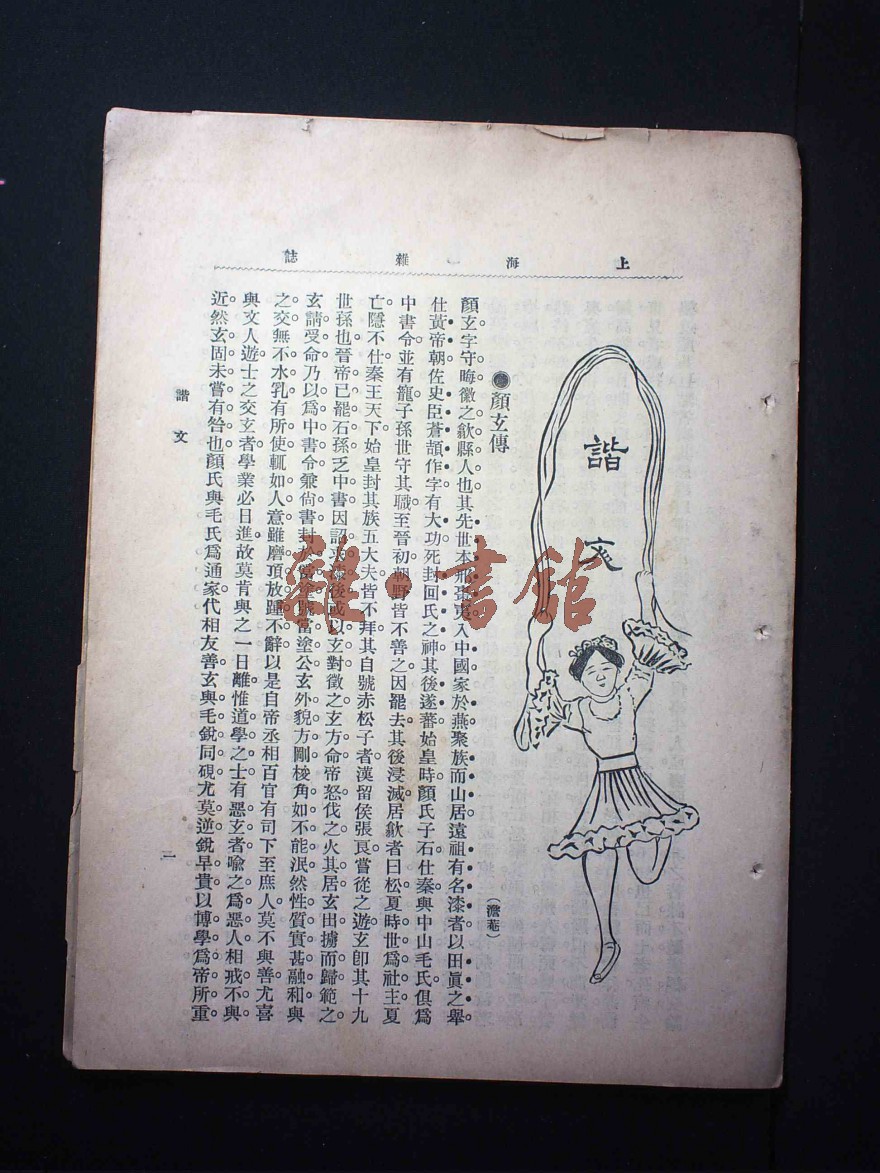 上海雜誌
諧文
●顏玄傳
(澹菴)
顏玄字守晦徽之歙縣人也其先世本飛棗夷入中國家於燕聚族而山居遠祖有名漆者以田眞之舉
仕黃帝朝佐史臣蒼頡作字有大功死封回氏之神其後遂蕃始皇時顏氏子石仕秦與中山毛氏俱爲
中書令並有寵子孫世守其職至晉初朝野皆不善之因罷去其後浸滅居歙者曰松夏時世爲社主夏
亡隱不仕秦王天下始皇封其族五大夫皆不拜其自號赤松子者漢留侯張良嘗從之遊玄卽其十九
世孫也晉帝已罷石孫乏中書因詔求漆後或以玄對徵之玄方命帝怒伐之火其居玄出擄而歸範之
玄請受命乃以爲中書令兼尙書封於當塗號當塗公玄外貌方剛棱角如不能泯然性質實甚融和與
之交無不水乳有所使輒如人意雖磨頂放踵不辭以是自帝丞相百官有司下至庶人莫不與善尤喜
與文人遊士之交玄者學業必日進故莫肯與之一日離惟道學之士有惡玄者喩之爲惡人相戒不與
近然玄固未嘗有咎也顏氏與毛氏爲通家代相友善玄與毛銳同硯尤莫逆銳早貴以博學爲帝所重
諧文
二
雜·書館